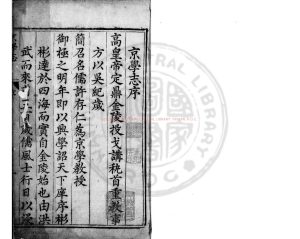 京學志序
高皇帝定鼎金陵投戈講藝首重教事
方以吳紀歲
簡召名儒許存仁爲京學教授
御極之明年即以興學詔天下庠序彬
彬達於四海而實自金陵始也由洪
武而來
歲儒風士行日以